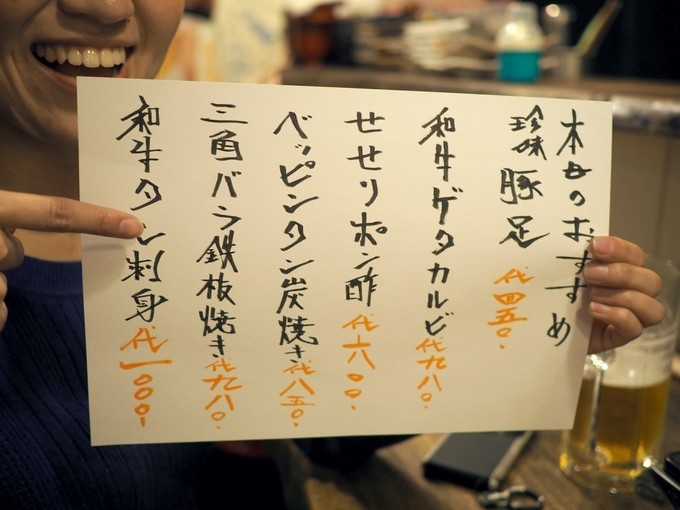 本日のおすすめ
珍味豚足 代四五〇・
和牛ゲタカルビ 代九八〇・
せせりポン酢 代六〇〇
ベッピンタン炭焼き 代八五〇・
三角バラ鉄板焼き 代九八〇・
和牛タン刺身 代一〇〇〇・